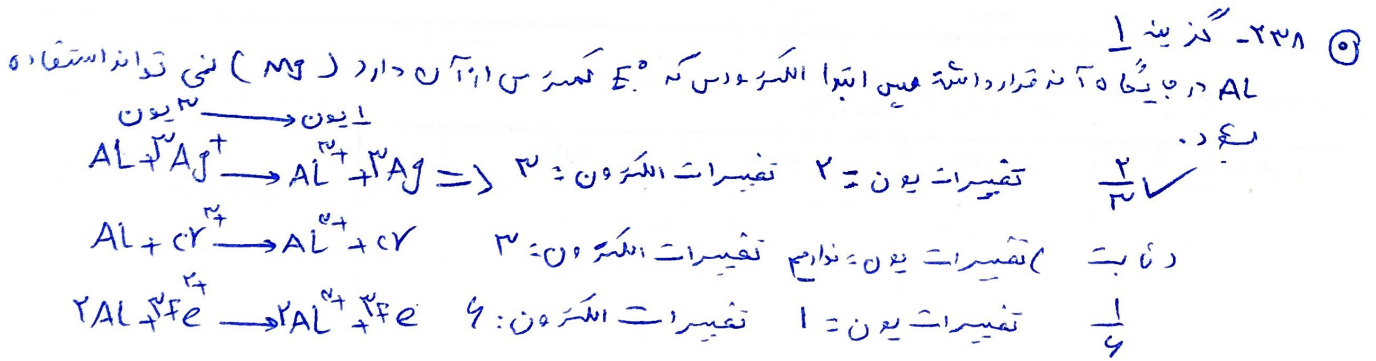 ۲۳۸- گزینه ۱
AL در جایگاه آند قرار داشته پس ابتدا الکترودی که E° کمتری از آن دارد (Mg) نمی تواند استفاده
بشود.
۳ یون → ۱ یون
AL + ۳Ag⁺ → AL³⁺ + ۳Ag => تغییرات الکترون: ۳ تغییرات یون = ۲ ۲/۳ ✓
AL + Cr³⁺ → AL³⁺ + Cr تغییرات الکترون: ۳ تغییرات یون: نداریم (ثابت)
۲AL + ۳Fe²⁺ → ۲AL³⁺ + ۳Fe تغییرات الکترون: ۶ تغییرات یون = ۱ ۱/۶